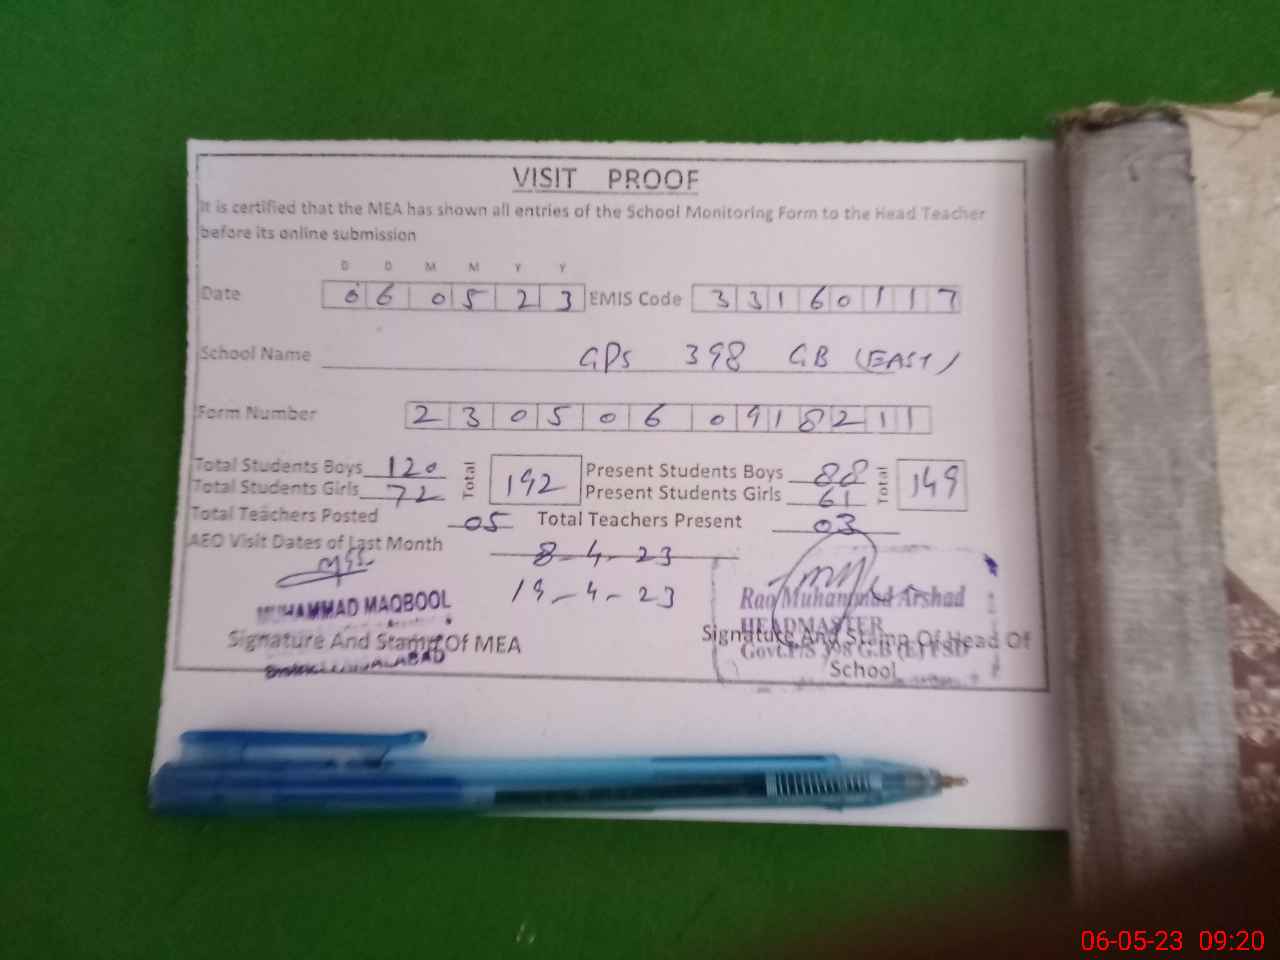 VISIT PROOF
It is certified that the MEA has shown all entries of the School Monitoring Form to the Head Teacher
before its online submission
D D M M Y Y
Date 06 05 23 EMIS Code 33160117
School Name GPS 398 GB (EAST)
Form Number 2305060918211
Total Students Boys 120 Total 192 Present Students Boys 88 Total 149
Total Students Girls 72 Present Students Girls 61
Total Teachers Posted 05 Total Teachers Present 03
AEO Visit Dates of Last Month 8-4-23
19-4-23
MUHAMMAD MAQBOOL
Signature And Stamp Of MEA
Rao Muhammad Arshad
HEADMASTER
Govt.P/S 398 G.B (E) FSD
Signature And Stamp Of Head Of
School
06-05-23 09:20